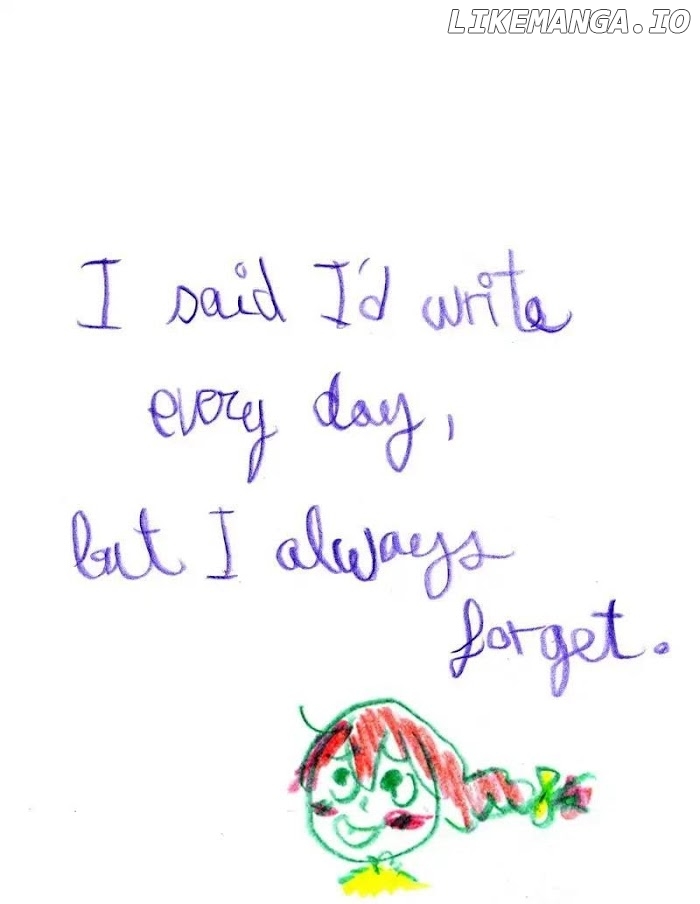 LIKEMANGA.IO
I said I'd write
every day,
but I always
forget.